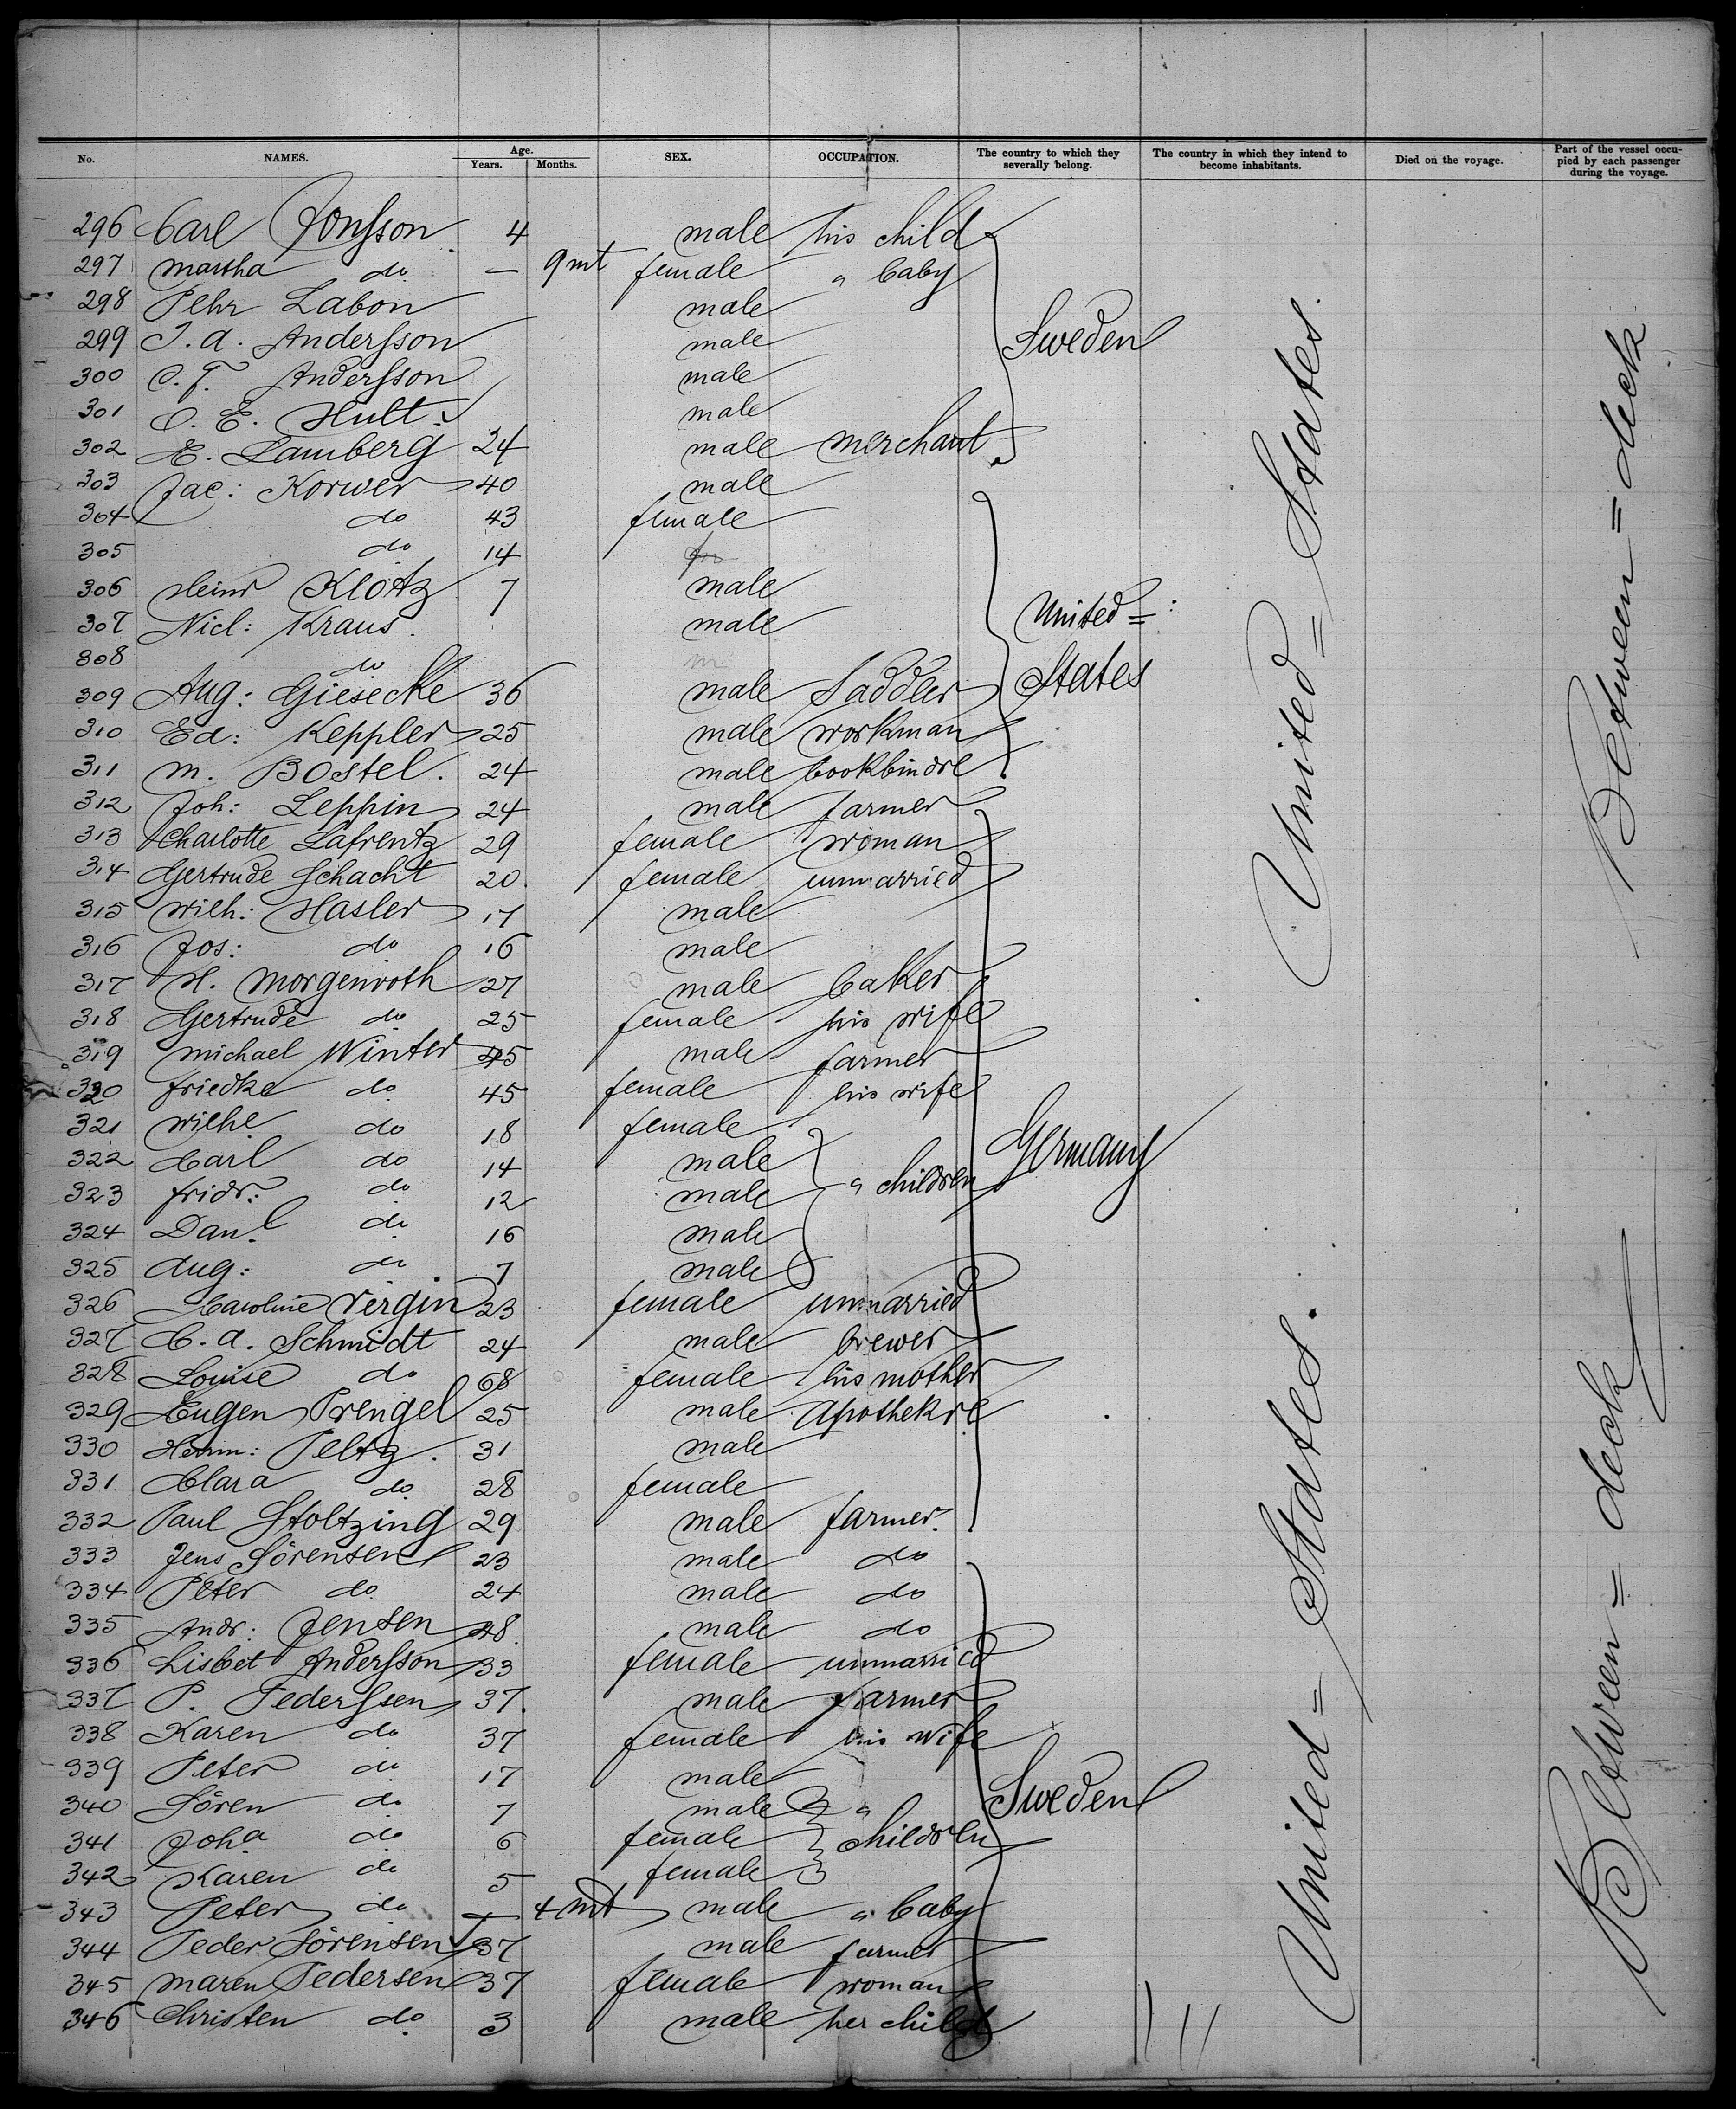 No. NAMES. Age. Years. Months. SEX. OCCUPATION. The country to which they severally belong. The country in which they intend to become inhabitants. Died on the voyage. Part of the vessel occupied by each passenger during the voyage.
296 Carl Jonsson 4 male his child
297 Martha do — 9 mt female " baby
298 Pehr Labon male
299 J. A. Andersson male Sweden
300 C. F. Andersson male
301 O. E. Hult. male
302 E. Lamberg 24 male merchant
303 Jac: Korwer 40 male
304 do 43 female
305 do 14
306 Heinr Klotz 7 male
307 Nicl: Kraus. male United =
308 do m
309 Aug: Giesecke 36 male Saddler States
310 Ed: Keppler 25 male workman
311 M. Bostel. 24 male bookbindre
312 Joh: Leppin 24 male farmer
313 Charlotte Lafrentz 29 female woman
314 Gertrude Schacht 20. female unmarried
315 Wilh: Hasler 17 male
316 Jos: do 16 male
317 H. Morgenroth 27 male baker
318 Gertrude do 25 female his wife
319 Michael Winter 45 male farmer
320 Friedke do 45 female his wife
321 Wilhe do 18 female
322 Carl do 14 male Germany
323 Fridr: do 12 male " children
324 Danl do 16 male
325 Aug: do 7 male
326 Caroline Vergin 23 female unmarried
327 C. A. Schmidt 24 male brewer
328 Louise do 68 female his mother
329 Eugen Prengel 25 male Apothekre
330 Herm: Peltz. 31 male
331 Clara do 28 female
332 Paul Stoltzing 29 male farmer.
333 Jens Sörensen 23 male do
334 Peter do 24 male do
335 Andr: Jensen 48 male do
336 Lisbet Andersson 33 female unmarried
337 P. Pederssen 37. male farmer
338 Karen do 37 female his wife
339 Peter do 17 male
340 Sören do 7 male " Sweden
341 Joha do 6 female children
342 Karen do 5 female
343 Peter do — 4 mt male " baby
344 Peder Sörensen 37 male farmer
345 Maren Pedersen 37 female woman
346 Christen do 3 male her child
United = States.
United = States.
Between = deck
Between = deck